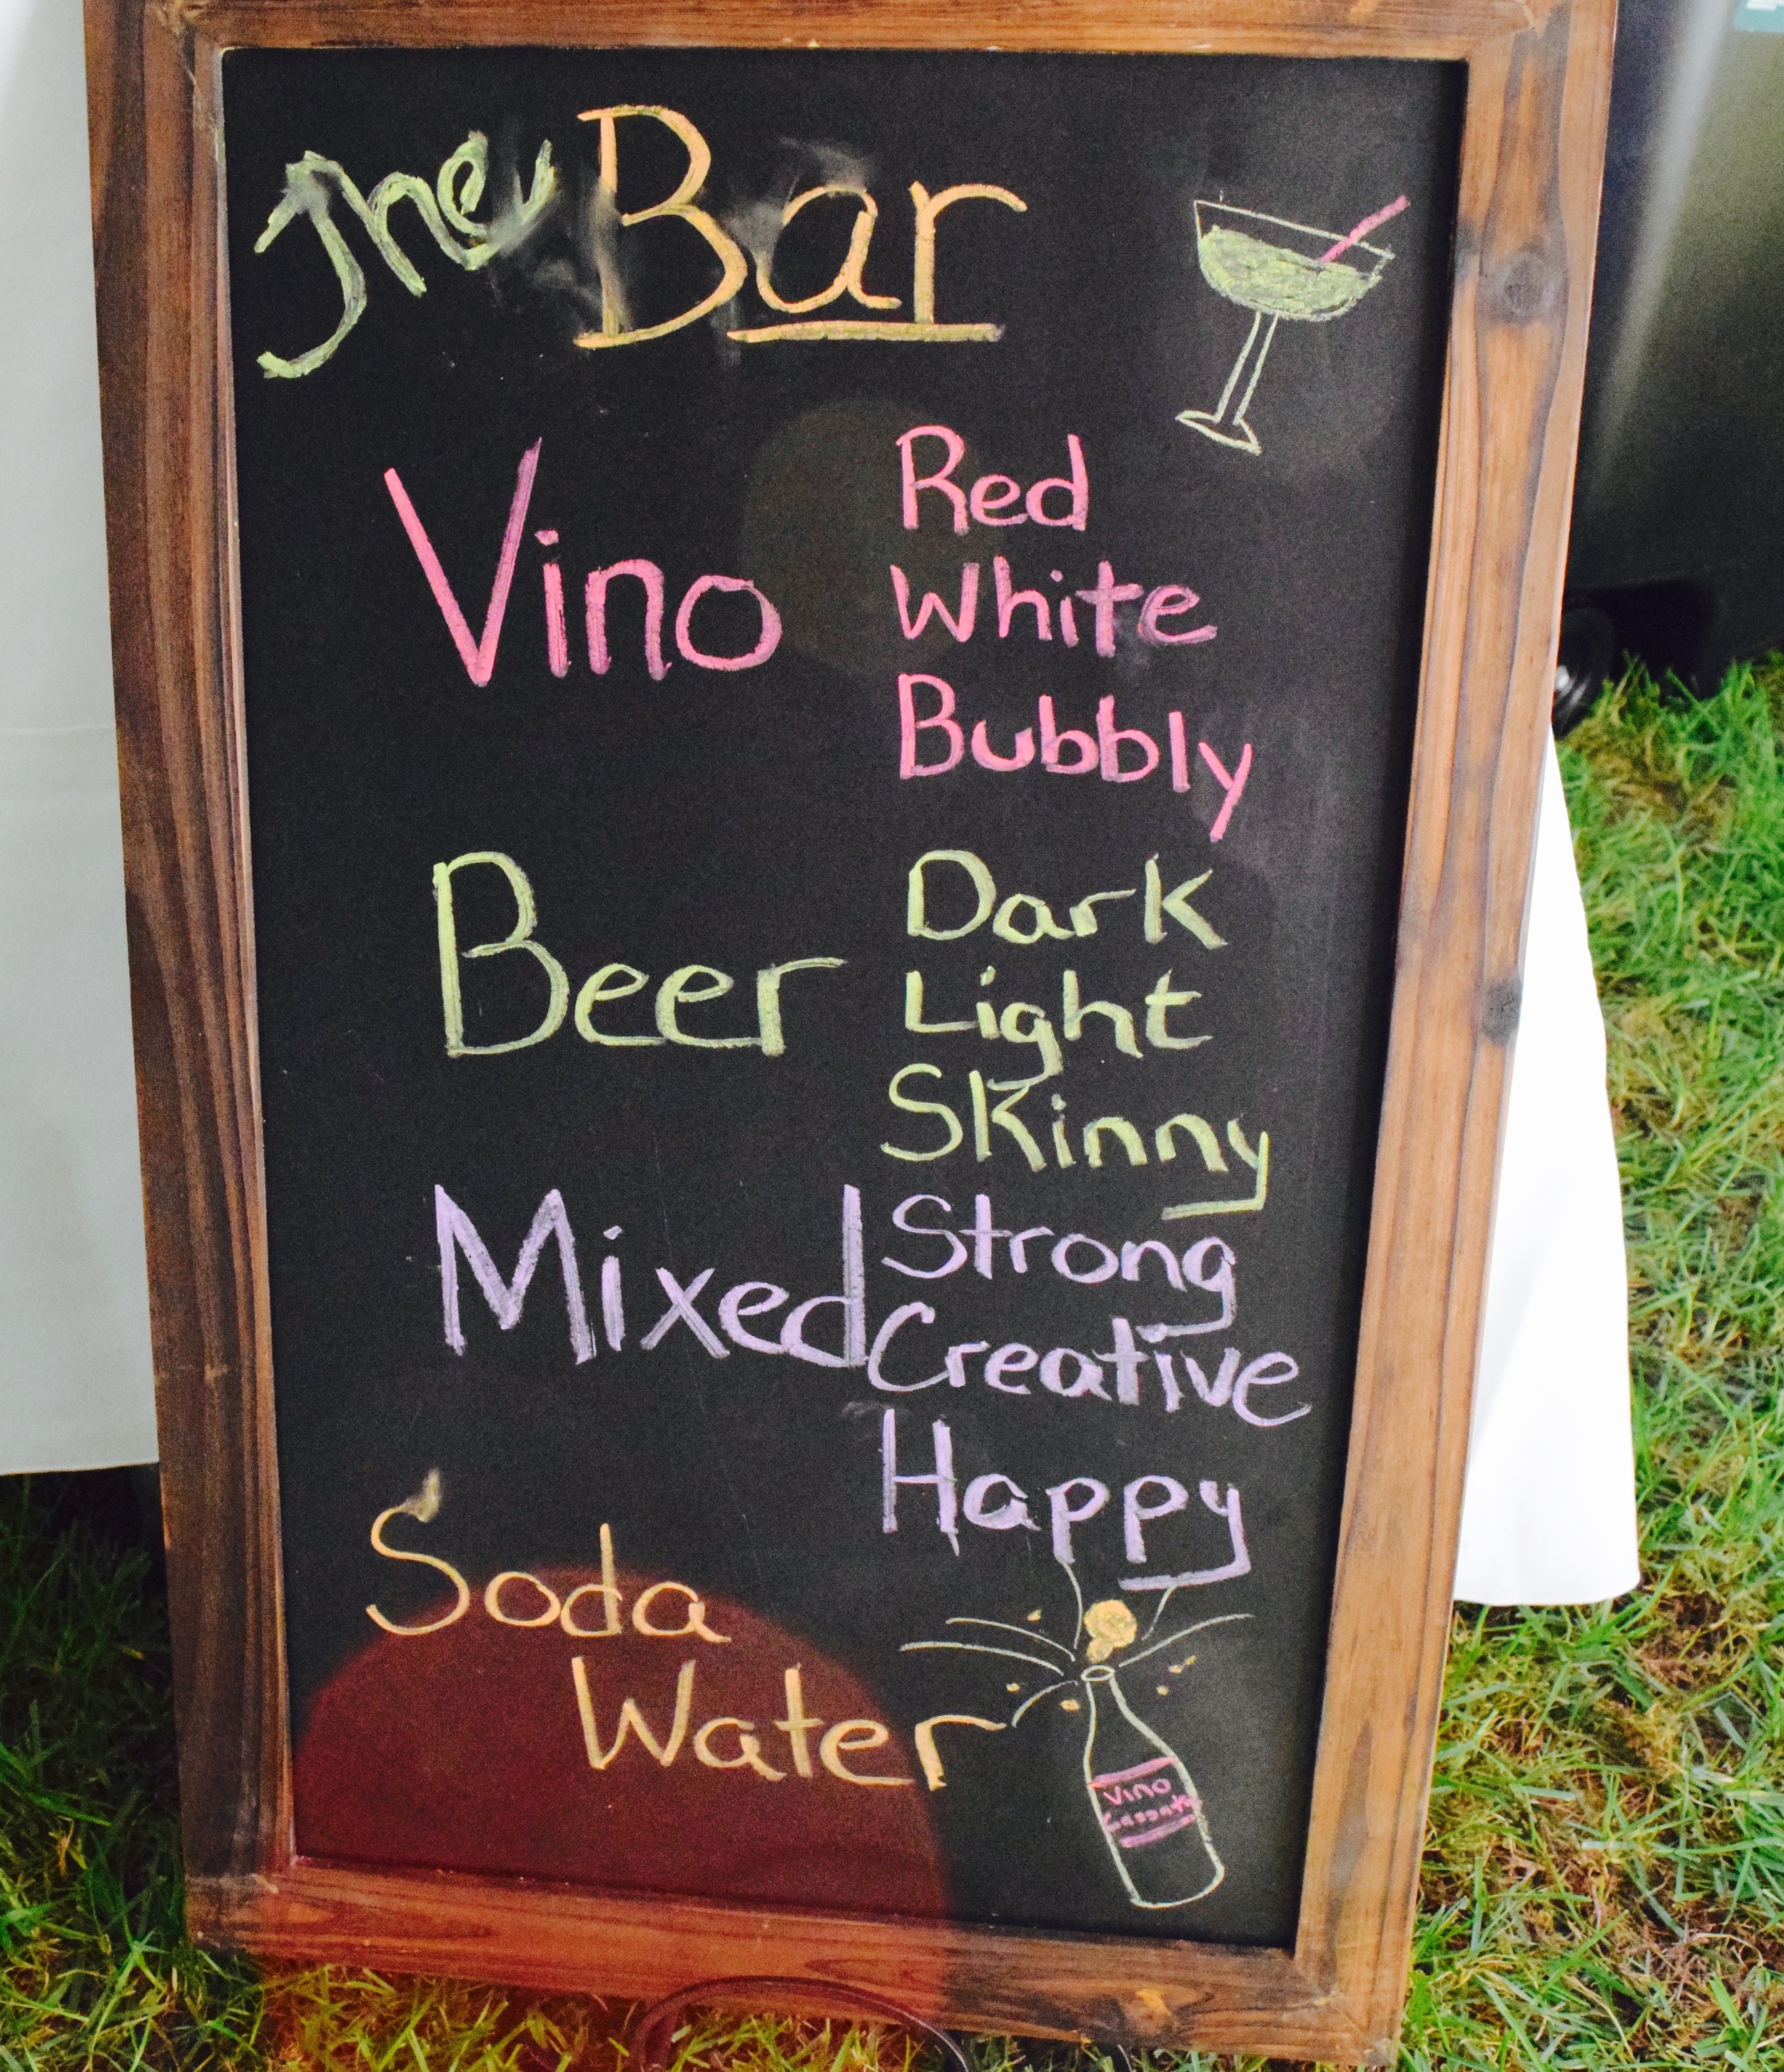 The Bar
Vino
Red
White
Bubbly
Beer
Dark
Light
Skinny
Mixed
Strong
Creative
Happy
Soda
Water
Vino